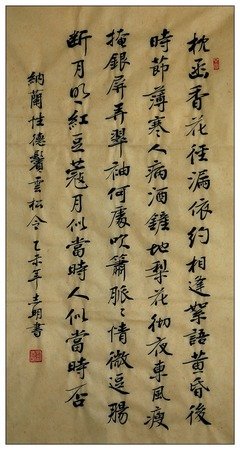 枕函香花徑漏依約相逢絮語黃昏後
時節薄寒人病酒鏟地梨花徹夜東風瘦
掩銀屏垂翠袖何處吹簫脈〻情微逗腸
斷月明紅豆蔻月似當時人似當時否
納蘭性德鬢雲松令乙未年志明書